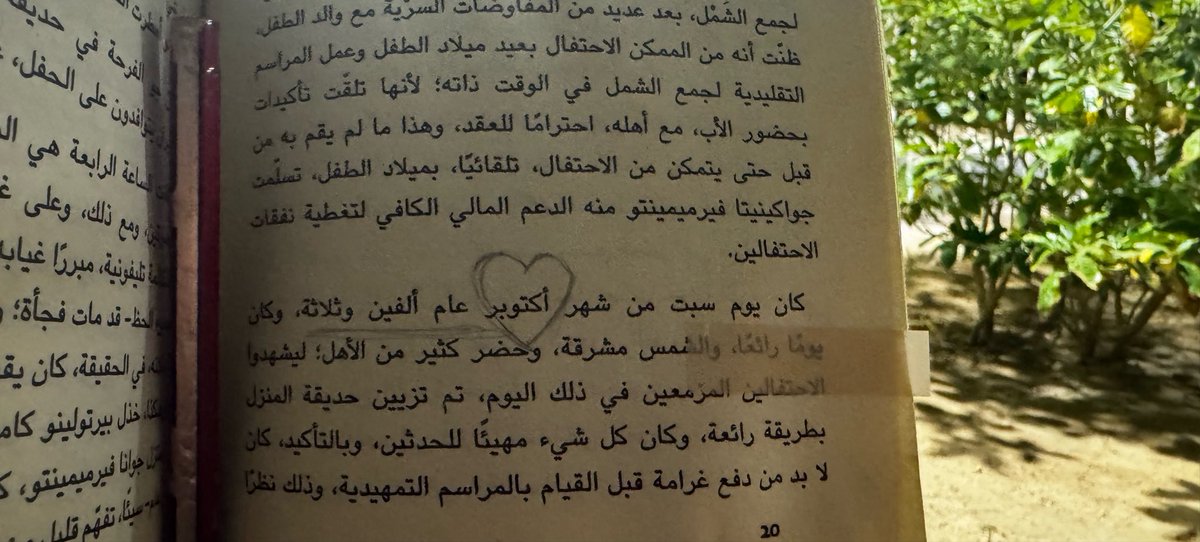 لجمع الشَمْل، بعد عديد من المفاوضات السرّية مع والد الطفل،
ظنّت أنه من الممكن الاحتفال بعيد ميلاد الطفل وعمل المراسم
التقليدية لجمع الشمل في الوقت ذاته؛ لأنها تلقّت تأكيدات
بحضور الأب، مع أهله، احترامًا للعقد، وهذا ما لم يقم به من
قبل حتى يتمكن من الاحتفال، تلقائيًا، بميلاد الطفل، تسلّمت
جواكينيتا فيرميمينتو منه الدعم المالي الكافي لتغطية نفقات
الاحتفالين.
كان يوم سبت من شهر أكتوبر عام ألفين وثلاثة، وكان
يومًا رائعًا، والشمس مشرقة، وحضر كثير من الأهل؛ ليشهدوا
الاحتفالين المزمعين في ذلك اليوم، تم تزيين حديقة المنزل
بطريقة رائعة، وكان كل شيء مهيئًا للحدثين، وبالتأكيد، كان
لا بد من دفع غرامة قبل القيام بالمراسم التمهيدية، وذلك نظرًا
20
الفرحة في
على الحفل،
الساعة الرابعة هي
ومع ذلك، وعلى
تليفونية، مبررًا غيابه
الحظ- قد مات فجأة؛
في الحقيقة، كان
خذل بيرتولينو
جوانا فيرميمينتو،
تفهّم قليل